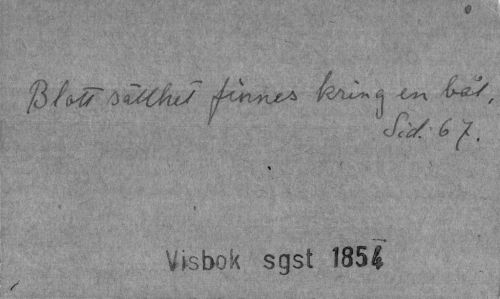 Blott sällhet finnes kring en bål,
Sid. 67.
Visbok sgst 1854